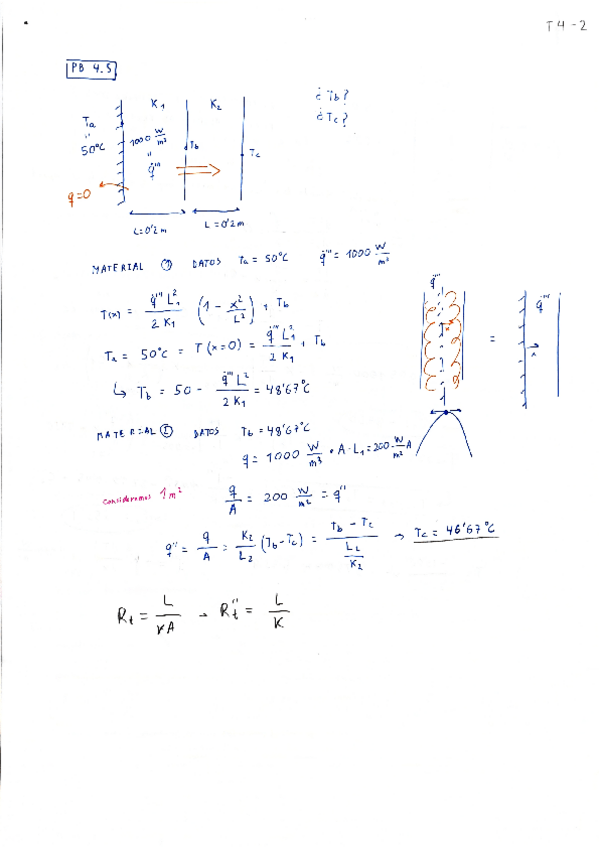 T4-2
PB 4.5
K₁ K₂
¿Tb?
¿Tc?
Ta
"
50°C
1000 W/m³
"
q̇'''
Tb
Tc
q=0
L=0'2m L=0'2m
MATERIAL ① DATOS Ta = 50°C q̇''' = 1000 W/m³
T(x) = q̇''' L₁²/2 K₁ (1 - x²/L²) + Tb
Ta = 50°C = T(x=0) = q̇''' L₁²/2 K₁ + Tb
↳ Tb = 50 - q̇''' L²/2 K₁ = 48'67°C
q̇'''
=
q̇'''
x
MATERIAL ② DATOS Tb = 48'67°C
q = 1000 W/m³ · A · L₁ = 200 W/m² A
Consideramos 1m² q/A = 200 W/m² = q''
q'' = q/A = K₂/L₂ (Tb - Tc) = Tb - Tc / L₂/K₂ → Tc = 46'67°C
Rt = L/KA → Rt'' = L/K